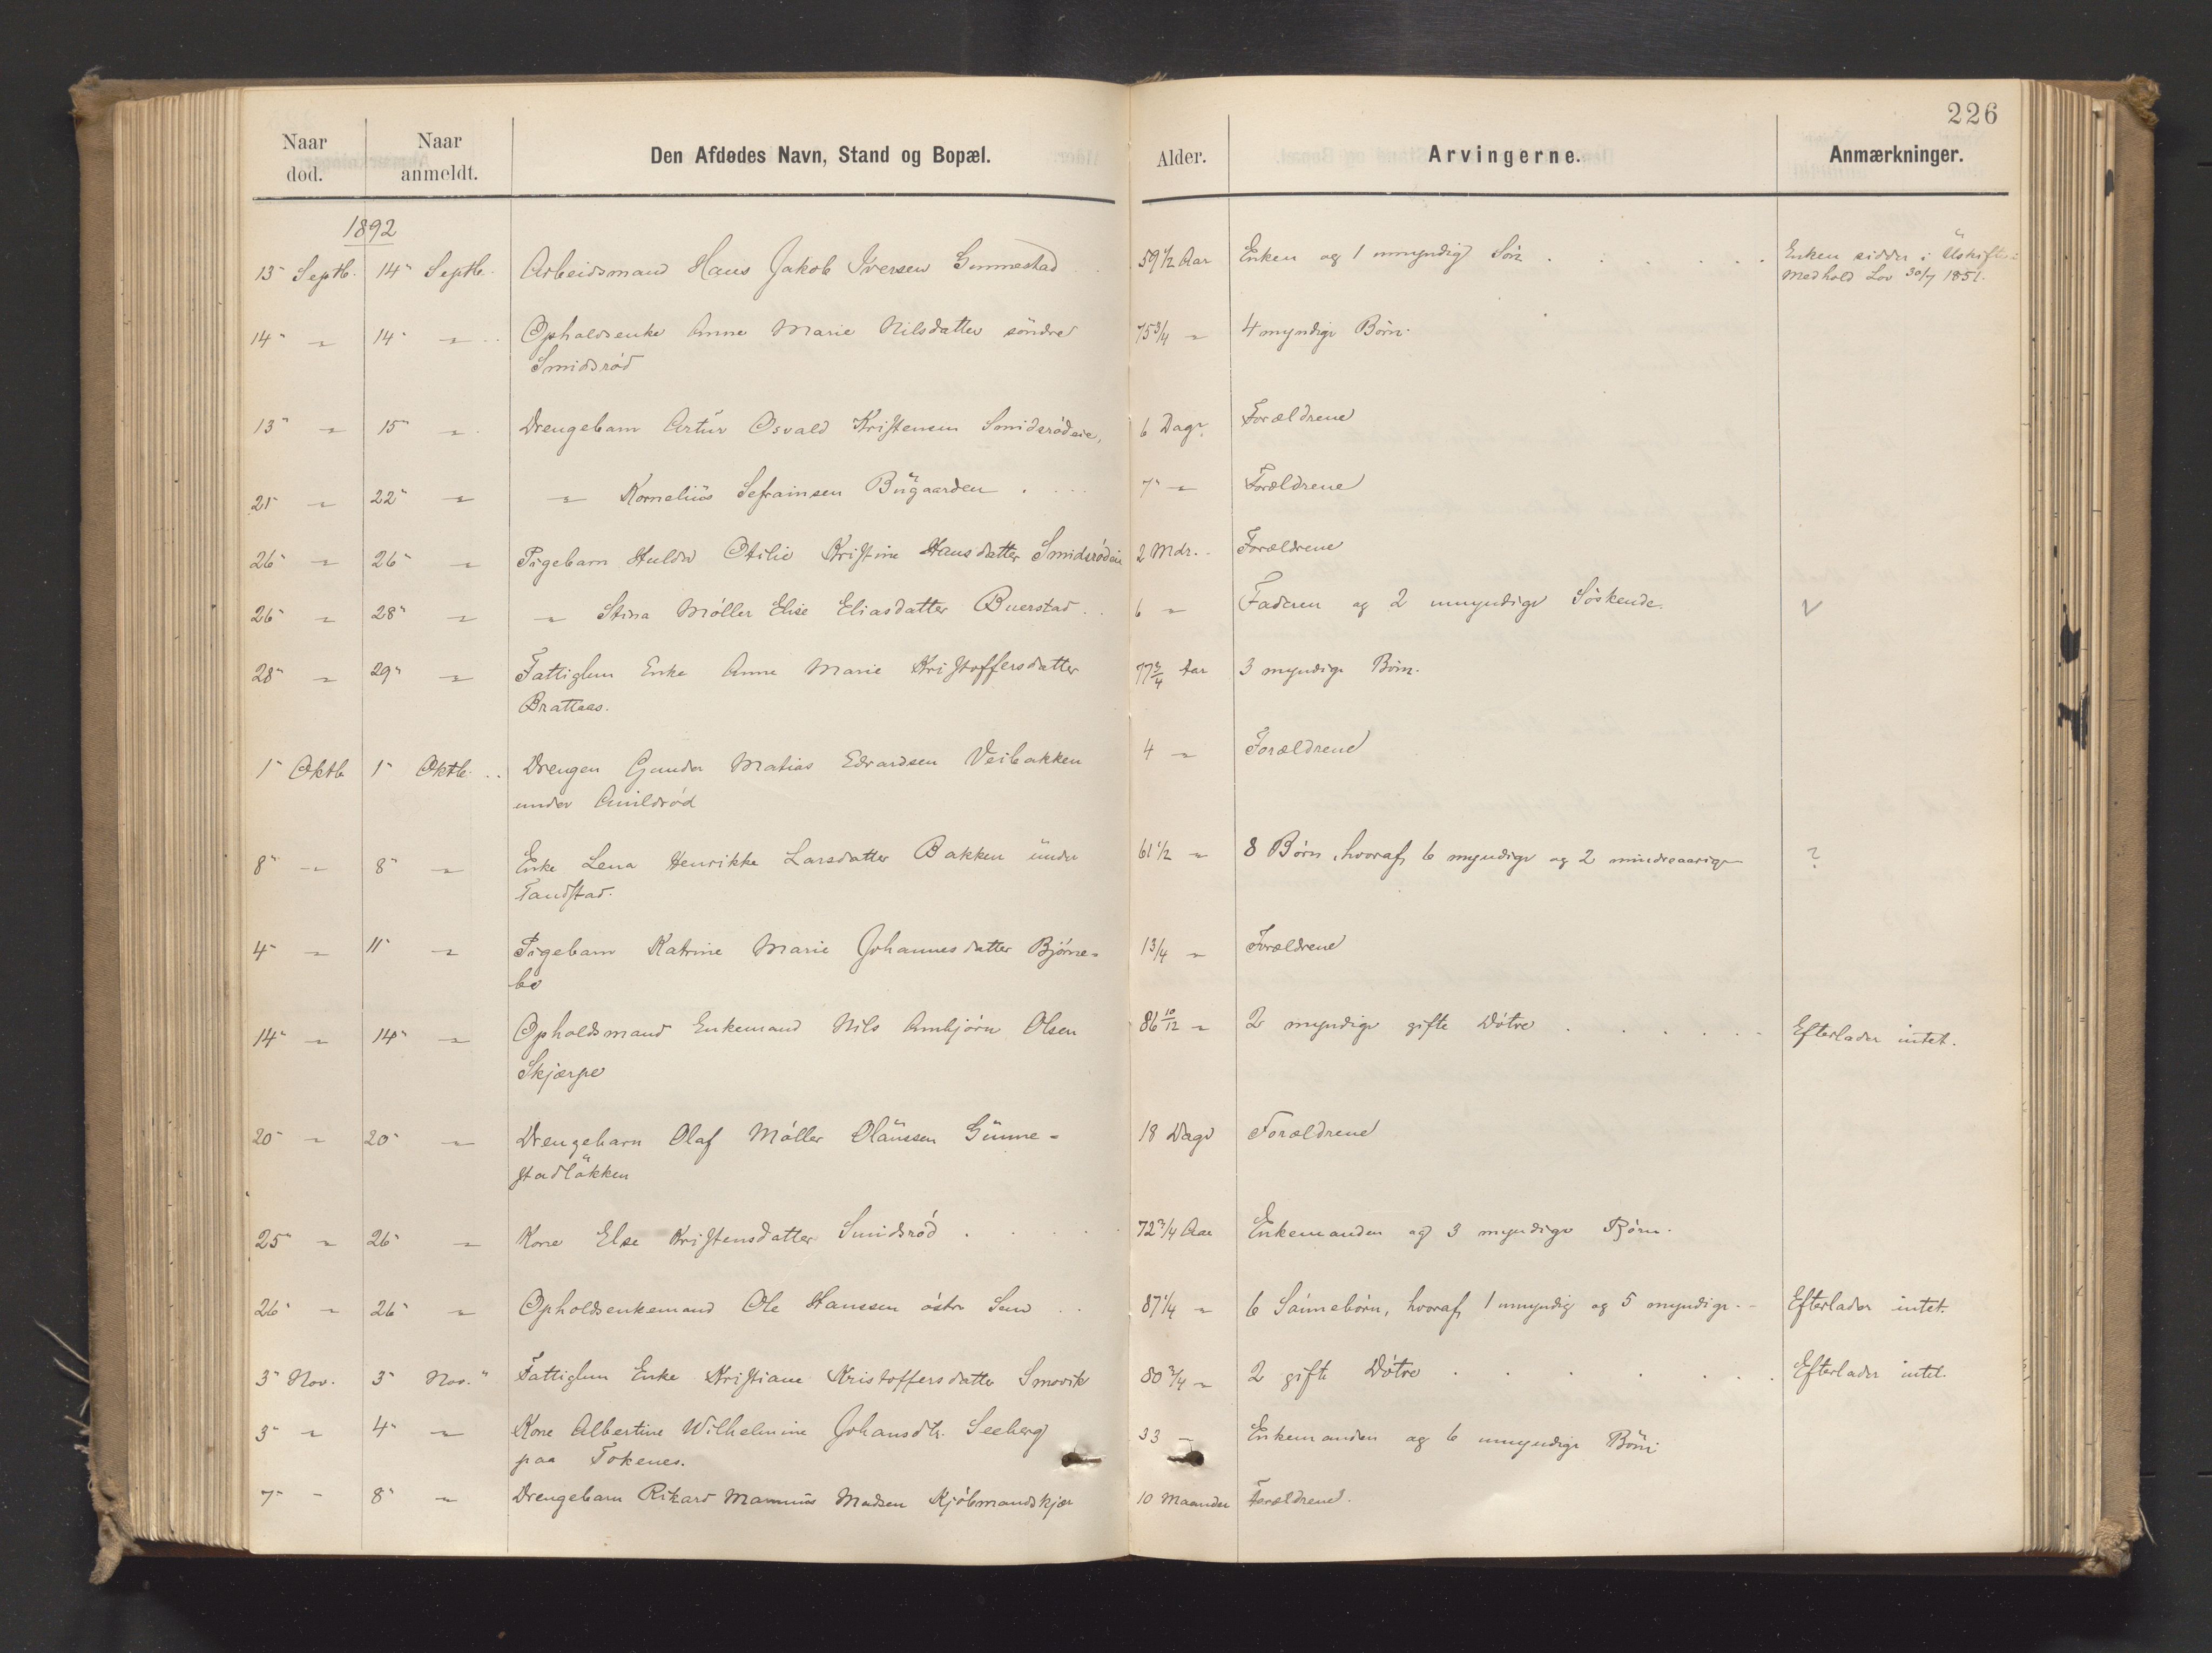 226
Naar død. Naar anmeldt. Den Afdødes Navn, Stand og Bopæl. Alder. Arvingerne. Anmærkninger.
1892
13" Septb. 14" Septb. Arbeidsmand Hans Jakob Iversen Gunnestad 59 1/2 Aar Enken og 1 umyndig Søn Enken sidder i Uskifte
Medhold Lov 30/7 1851.
14" " 14" " Opholdsenke Anne Marie Nilsdatter søndre 75 3/4 " 4 myndige Børn.
Smidsrød
13" " 15" " Drengebarn Artur Osvald Kristensen Smidsrødeie, 6 Dage Forældrene
21" " 22" " " Kornelius Sefrainsen Bugaarden 7" " Forældrene
26" " 26" " Pigebarn Hulda Otilie Kristine Hansdatter Smidsrødeie 2 Mdr. Forældrene
26" " 28" " " Stina Møller Elise Eliasdatter Buerstad 6 " Faderen og 2 umyndige Søskende. √
28" " 29" " Fattiglem Enke Anne Marie Kristoffersdatter 77 3/4 Aar 3 myndige Børn.
Brattaas.
1" Oktb 1" Oktb. Drengen Gunder Matias Edvardsen Veibakken 4 " Forældrene
under Amildrød
8" " 8" " Enke Lena Henrikke Larsdatter Bakken under 61 1/2 " 8 Børn, hvoraf 6 myndige og 2 mindreaarige ?
Tandstad.
4" " 11" " Pigebarn Katrine Marie Johannesdatter Bjørne- 1 3/4 " Forældrene
bo
14" " 14" " Opholdsmand Enkemand Nils Anbjørn Olsen 86 10/12 " 2 myndige gifte Døtre Efterlader intet.
Skjærpe
20" " 20" " Drengebarn Olaf Møller Olaussen Gunne- 18 Dage Forældrene
stadløkken
25" " 26" " Kone Else Kristensdatter Smidsrød 72 3/4 Aar Enkemanden og 3 myndige Børn.
26" " 26" " Opholdsenkemand Ole Hanssen østre Sem 87 1/4 " 6 Sønnebørn, hvoraf 1 umyndig og 5 myndige. Efterlader intet.
3" Nov. 3" Nov. Fattiglem Enke Kristiane Kristoffersdatter Smovik 80 3/4 " 2 gifte Døtre Efterlader intet.
3" " 4" " Kone Albertine Wilhelmine Johansdtr. Seeberg 33 " Enkemanden og 6 umyndige Børn
paa Tokenes.
7" " 8" " Drengebarn Rikard Magnus Madsen Kjøbmandskjær 10 Maaneder Forældrene.